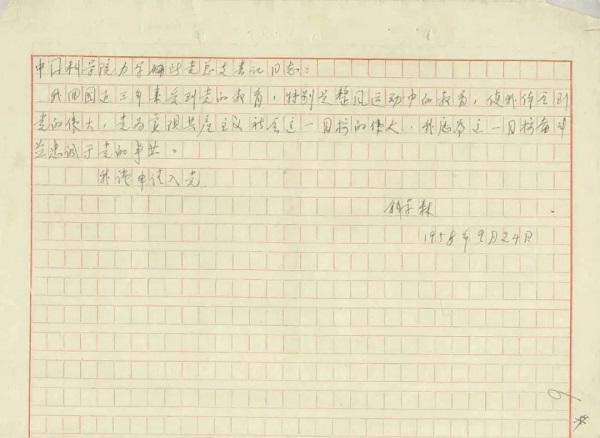 中国科学院力学研究所党总支书记同志：
我回国近三年来受到党的教育，特别是整风运动中的教育，使我体会到
党的伟大，党为实现共产主义社会这一目标的伟大。我愿为这一目标奋斗
并忠诚于党的事业。
我请申请入党
钱学森
1958年9月24日
6